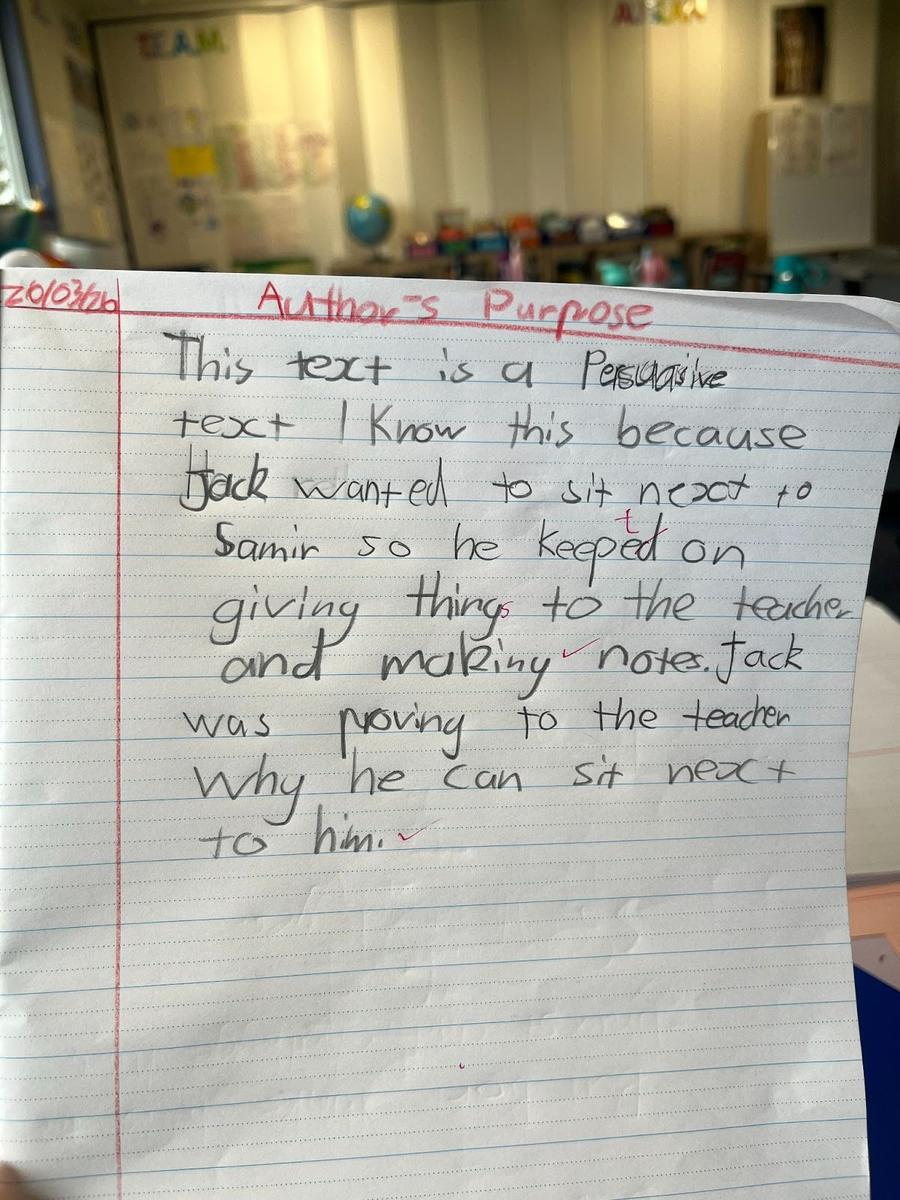 TEAM
20/03/26
Author's Purpose
This text is a Persuasive
text I Know this because
Jack wanted to sit next to
Samir so he keepted on
giving things to the teacher
and making notes. Jack
was proving to the teacher
Why he can sit next
to him.